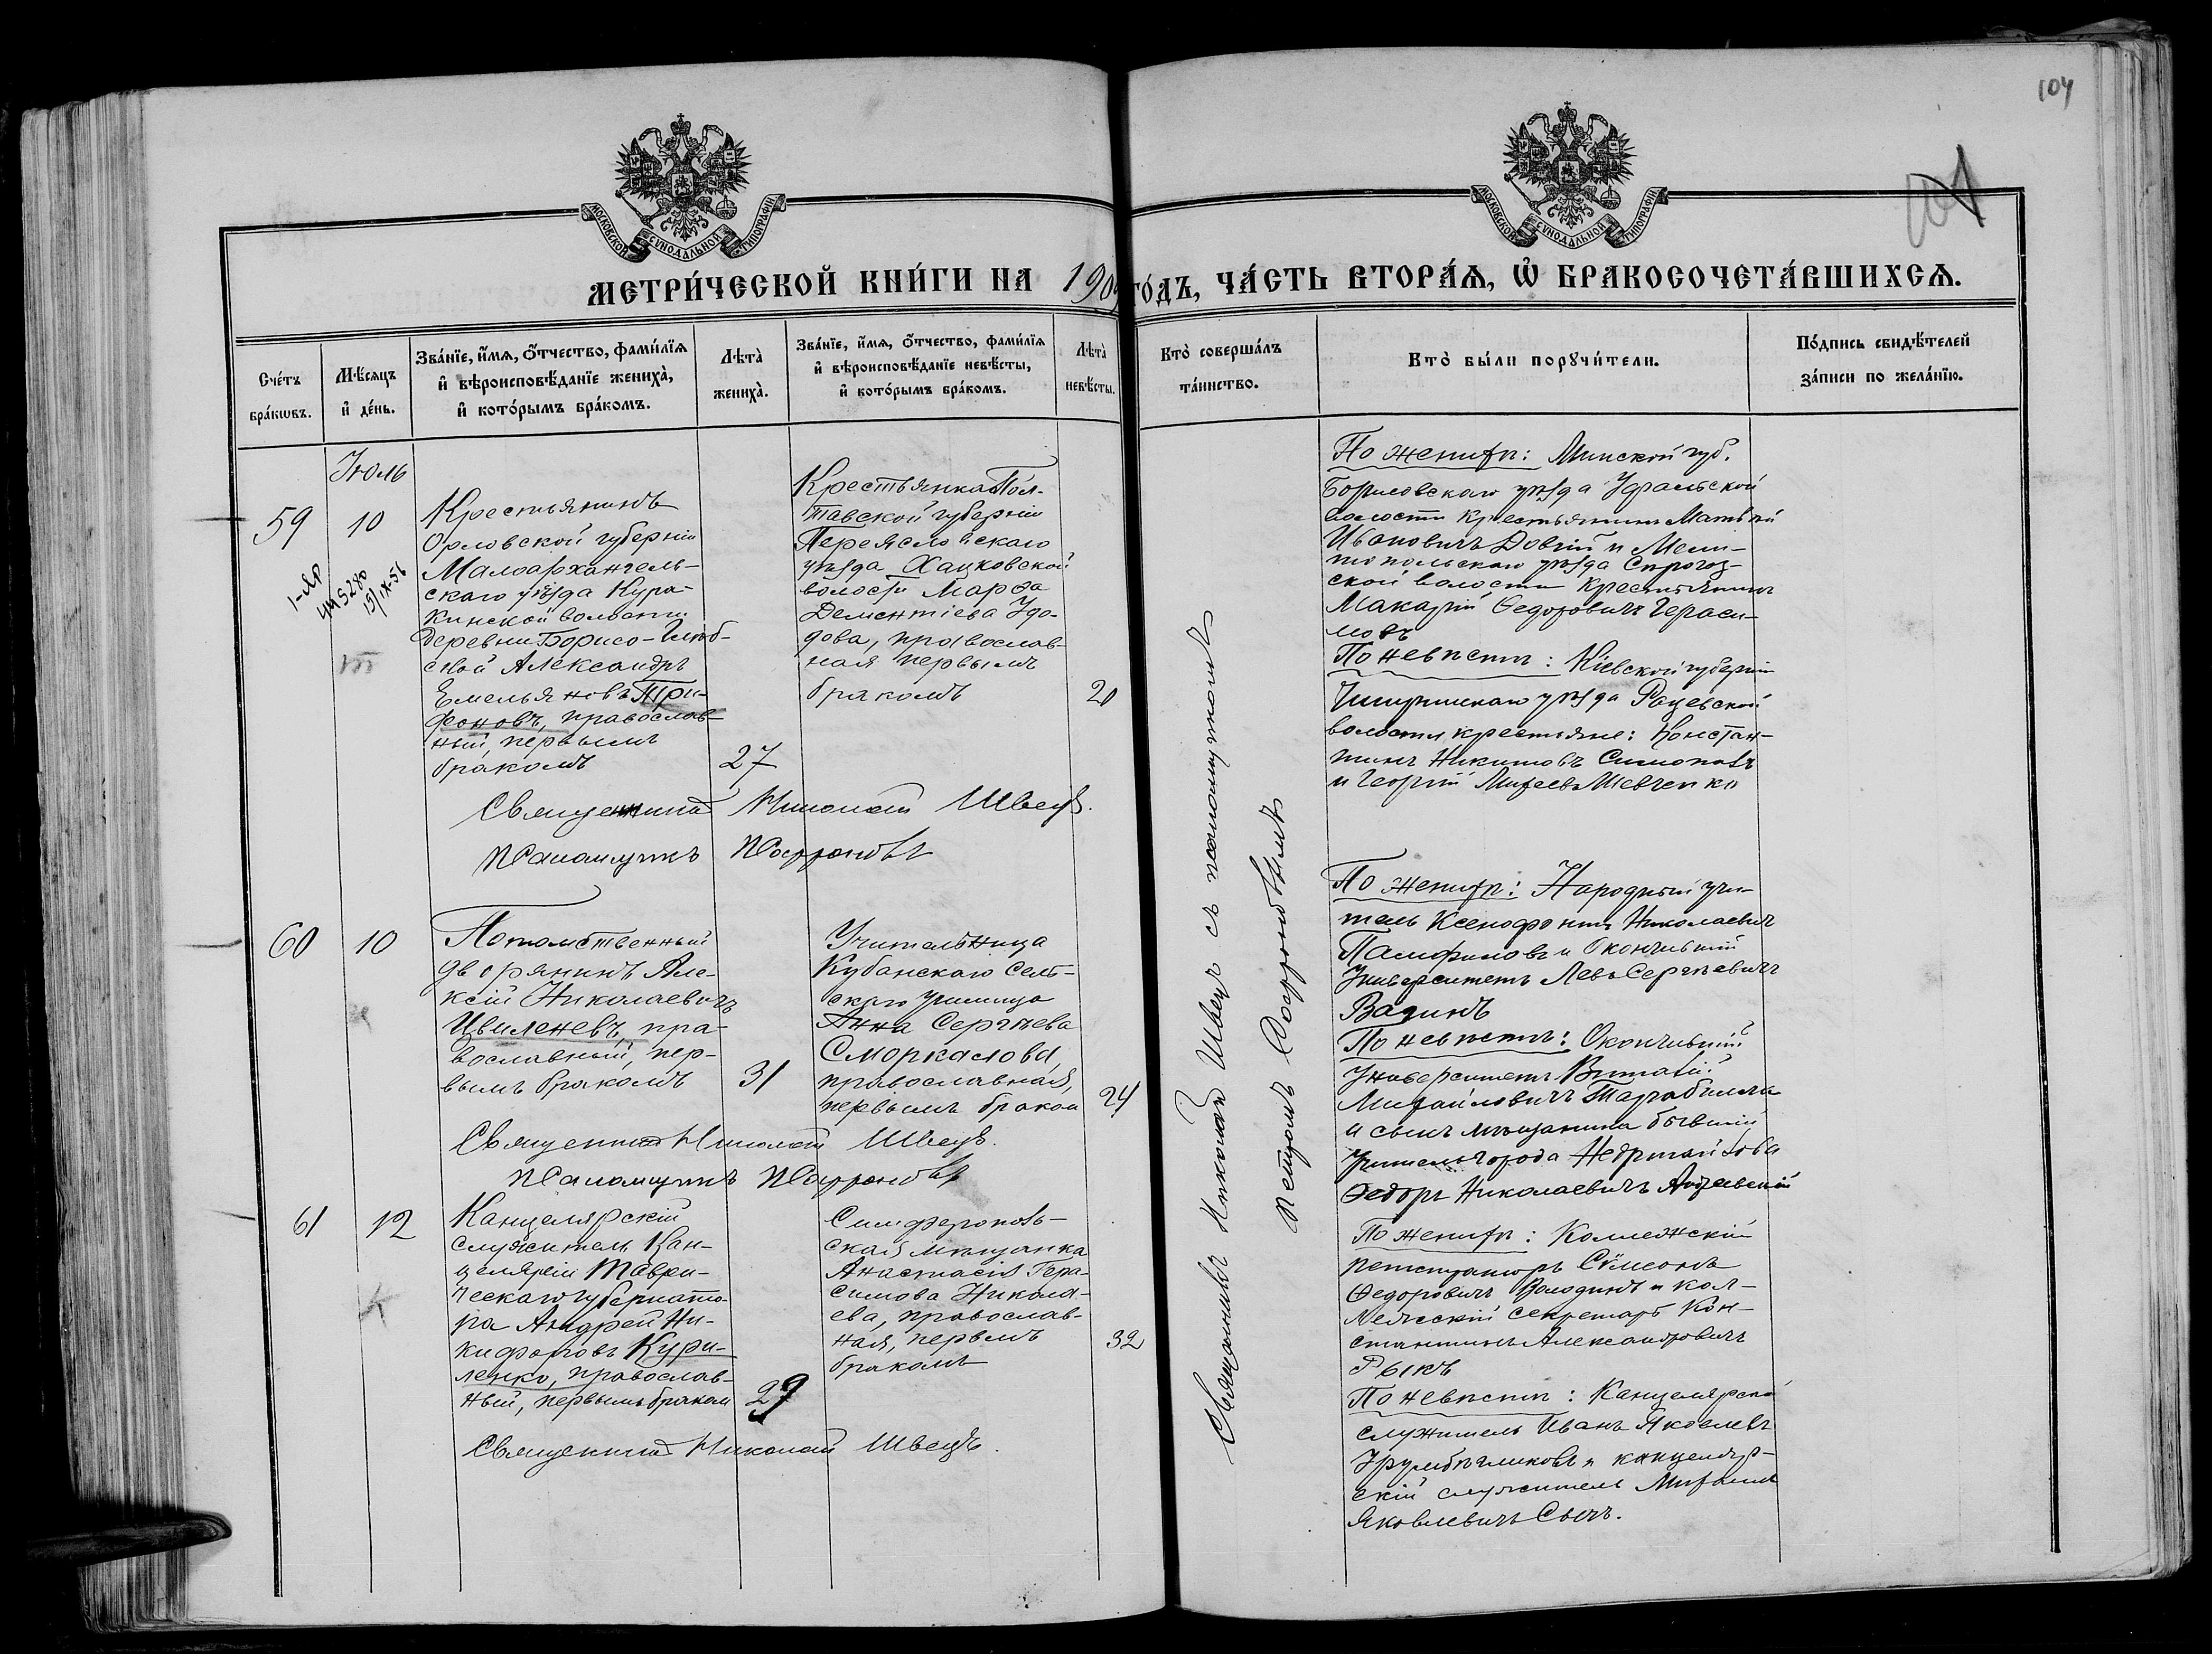 104
МОСКОВСКОЙ СѴНОДАЛЬНОЙ ТИПОГРАФІИ
МОСКОВСКОЙ СѴНОДАЛЬНОЙ ТИПОГРАФІИ
МЕТРИ́ЧЕСКОЙ КНИ́ГИ НА 190
ГО́ДЪ, ЧА́СТЬ ВТОРА́Ѧ, Ѡ҆ БРАКОСОЧЕТА́ВШИХСѦ.
Сче́тъ бра́кѡвъ.
Мѣ́сяцъ и҆ де́нь.
Зва́нїе, и҆́мѧ, ѻ҆́тчество, фами́лїѧ
и҆ вѣроисповѣ́данїе жениха̀,
и҆ кото́рымъ бра́комъ.
Лѣта̀ жениха̀.
Зва́нїе, и҆́мѧ, ѻ҆́тчество, фами́лїѧ
и҆ вѣроисповѣ́данїе невѣ́сты,
и҆ кото́рымъ бра́комъ.
Лѣта̀ невѣ́сты.
Кто̀ соверша́лъ
та́инство.
Кто̀ бы́ли порꙋчи́тели.
По́дпись свидѣ́телей
за́писи по жела́нїю.
Іюль
59
10
Крестьянинъ
Орловской губерніи
Малоархангель-
скаго уѣзда Кура-
кинской волости
деревни Борисо-Глѣб-
ской Александръ
Емельяновъ Три-
фоновъ, православ-
ный, первымъ
бракомъ
27
Крестьянка Пол-
тавской губерніи
Переяславскаго
уѣзда Хацковской
волости Марѳа
Дементіева Удо-
дова, православ-
ная первымъ
бракомъ
20
Священникъ Николай Швецъ.
Псаломщикъ П Софроновъ
По женихѣ: Минской губ.
Борисовскаго уѣзда
волости крестьянинъ Матвѣй
Ивановичъ Довгій и Мели-
топольскаго уѣзда Сѣрогоз-
ской волости крестьянинъ
Макарій Ѳедоровичъ Гераси-
мовъ
По невѣстѣ: Кіевской губерніи
Чигиринскаго уѣзда Рацевской
волости, крестьяне: Констан-
тинъ Никитовъ Симоновъ
и Георгій Михеевъ Шевченко
60
10
Потомственный
дворянинъ Але-
ксій Николаевичъ
Цвиленевъ, пра-
вославный, пер-
вымъ бракомъ
31
Учительница
Кубанскаго сель-
скаго училища
Анна Сергѣева
Сморкалова,
православная,
первымъ бракомъ
24
Священникъ Николай Швецъ.
Псаломщикъ П Софроновъ
По женихѣ: Народный учи-
тель Ксенофонтъ Николаевичъ
Памфиловъ и Окончившій
Университетъ Левъ Сергѣевичъ
Вадинъ
По невѣстѣ: Окончившій
Университетъ Виталій
Михайловичъ
и сынъ мѣщанина бывшій
учитель города
Ѳедоръ Николаевичъ
61
12
Канцелярскій
служитель Кан-
целяріи Таври-
ческаго губернато-
ра Андрей Ни-
кифоровъ Кури-
ленко, православ-
ный, первымъ бракомъ
29
Симферополь-
ская мѣщанка
Анастасія Гера-
симова Никола-
ева, православ-
ная, первымъ
бракомъ
32
Священникъ Николай Швецъ.
По женихѣ: Коллежскій
регистраторъ Сѵмеонъ
Ѳедоровичъ Володинъ и кол-
лежскій секретарь Кон-
стантинъ Александровичъ
Рыкъ
По невѣстѣ: Канцелярскій
служитель Иванъ Яковлевъ
и канцеляр-
скій служитель Михаилъ
Яковлевичъ Сычъ.
Священникъ Николай Швецъ съ псаломщикомъ
Петромъ Софроновымъ